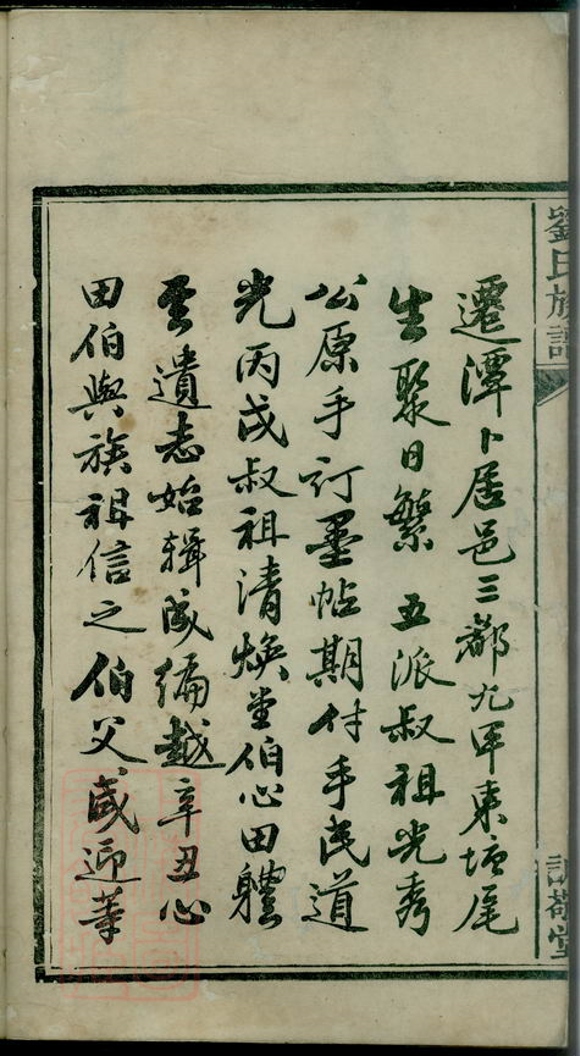 劉氏族譜
遷潭卜居邑三都九甲東塘尾
生聚日繁 五派叔祖光秀
公原手訂墨帖期付手民道
光丙戌叔祖清煥堂伯心田軆
至遺志始輯成編越辛丑心
田伯與族祖信之伯父咸迎等
敬堂